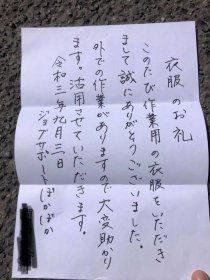 衣服のお礼
このたび作業用の衣服をいただき
まして誠にありがとうございました。
外での作業がありますので大変助かり
ます。活用させていただきます。
令和三年九月三日
ジョブサポートぽかぽか